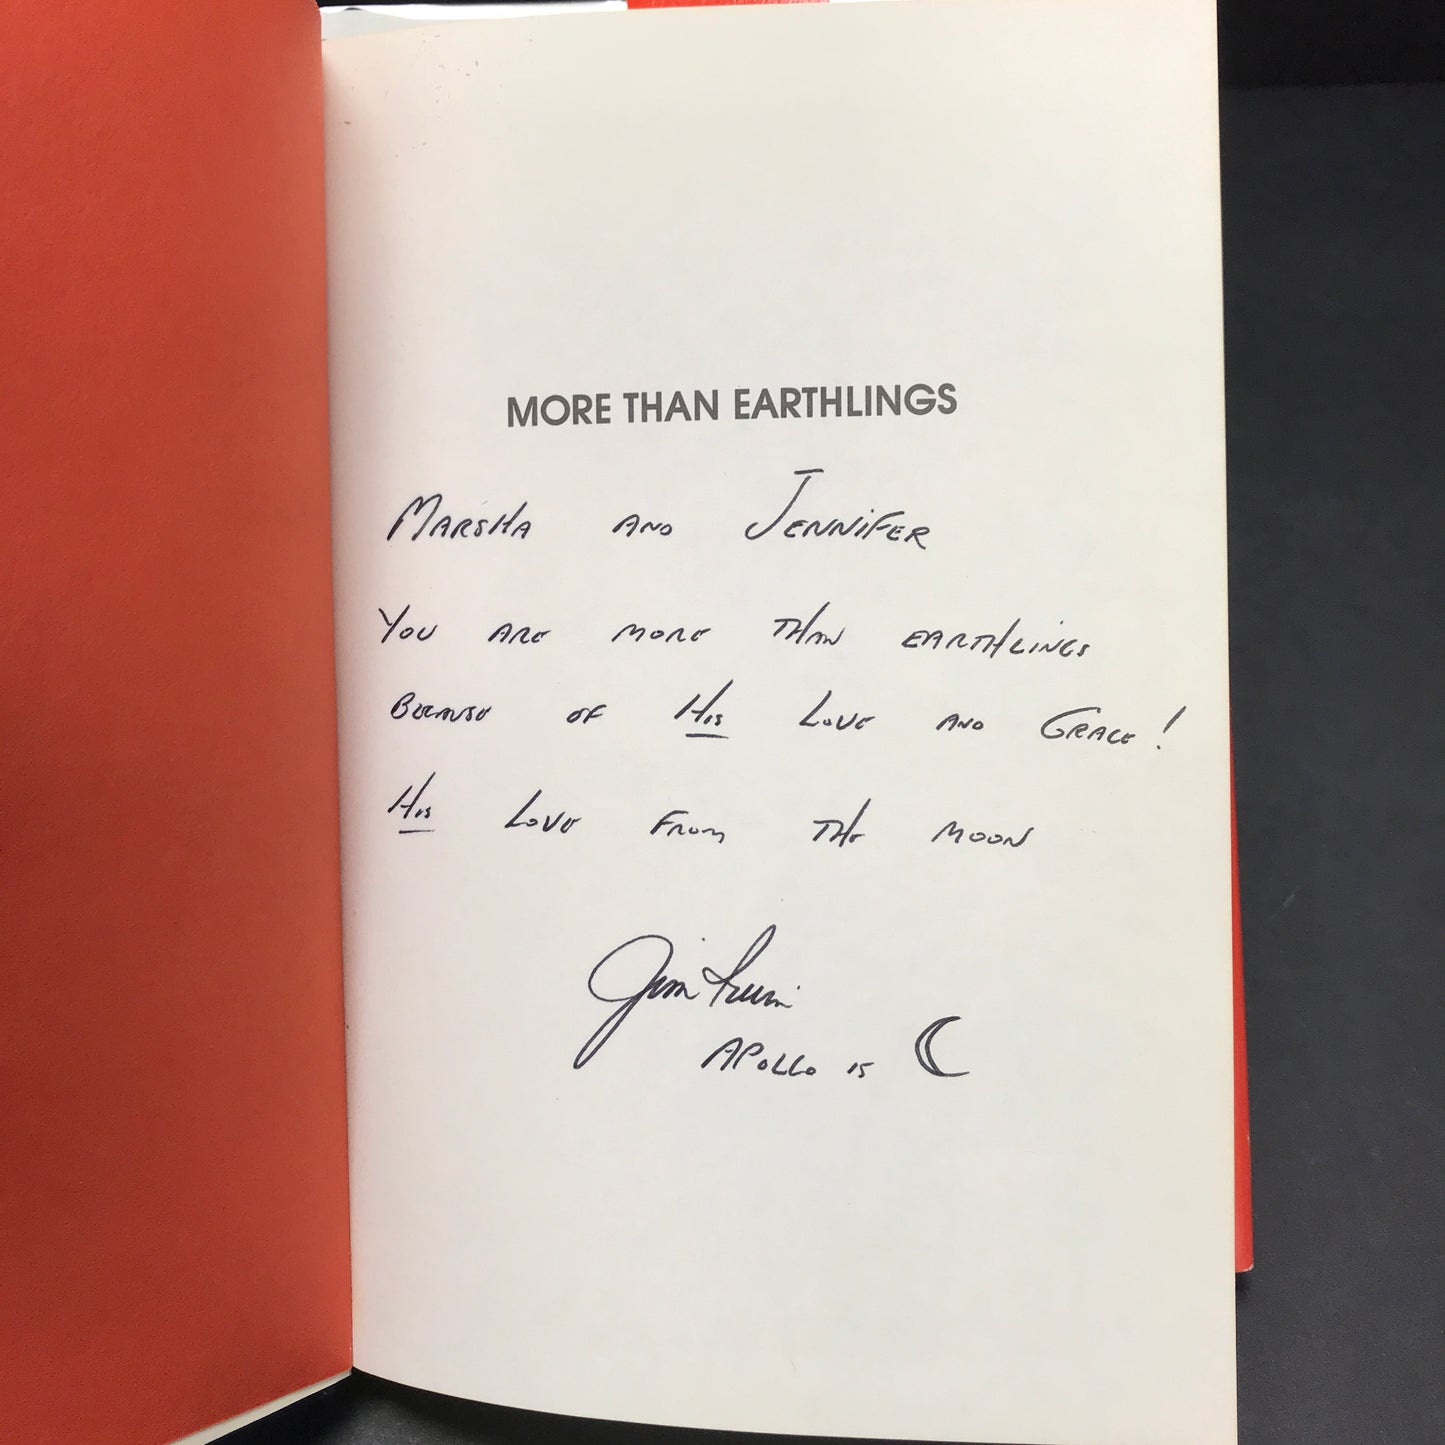 MORE THAN EARTHLINGS
MARSHA AND JENNIFER
YOU ARE MORE THAN EARTHLINGS
BECAUSE OF HIS LOVE AND GRACE!
HIS LOVE FROM THE MOON
Jim Irwin
APOLLO 15